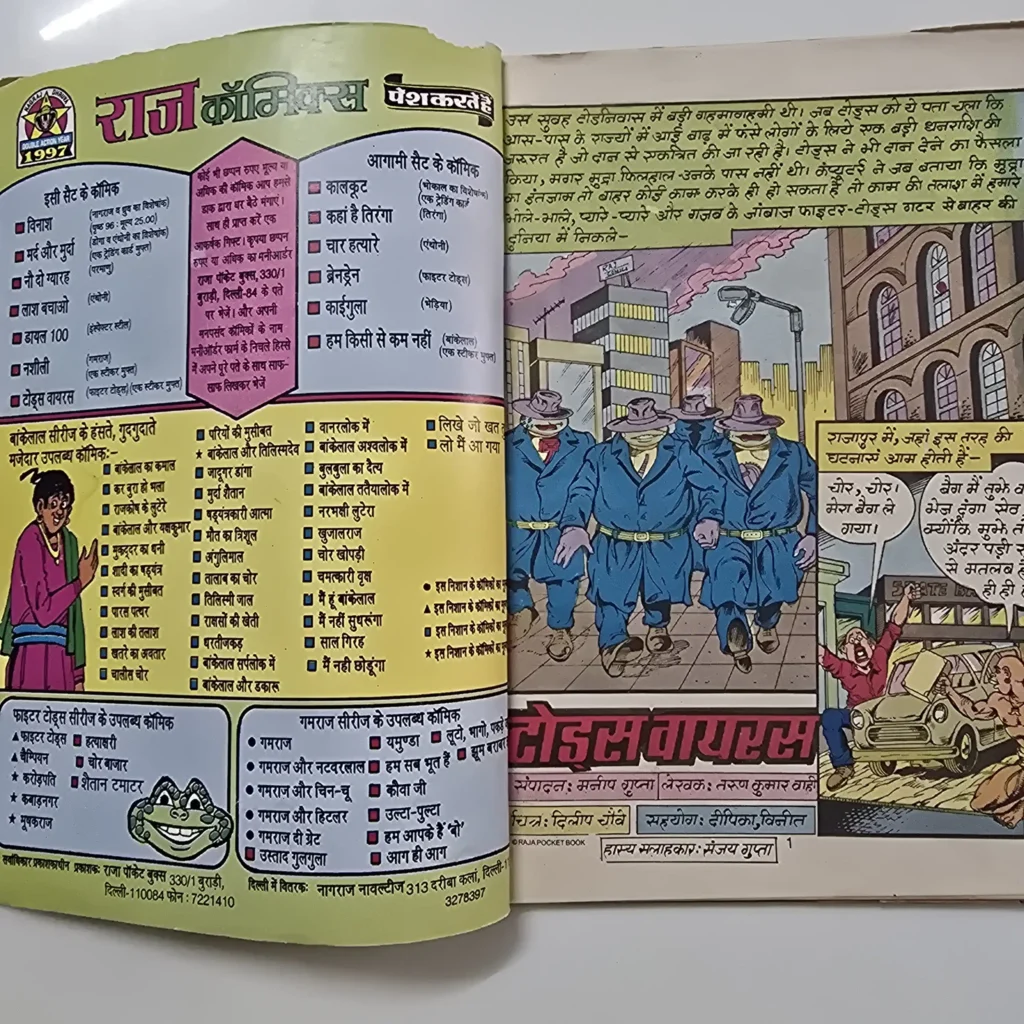 NAGRAJ DHRUVA
DOUBLE ACTION YEAR
1997
राज कॉमिक्स पेश करते हैं
इसी सैट के कॉमिक
विनाश (नागराज व ध्रुव का विशेषांक)
(पृष्ठ 96 - मूल्य 25.00)
मर्द और मुर्दा (डोगा व एंथोनी का विशेषांक)
(एक ट्रेडिंग कार्ड मुफ्त)
नौ दो ग्यारह (परमाणु)
लाश बचाओ (एंथोनी)
डायल 100 (इंस्पेक्टर स्टील)
नशीली (गमराज)
(एक स्टीकर मुफ्त)
टोड्स वायरस (फाइटर टोड्स) (एक स्टीकर मुफ्त)
कोई भी छप्पन रुपए मूल्य या
अधिक की कॉमिक आप हमसे
डाक द्वारा घर बैठे मंगाएं।
साथ ही प्राप्त करें एक
आकर्षक गिफ्ट। कृपया छप्पन
रुपए या अधिक का मनीआर्डर
राजा पॉकेट बुक्स, 330/1
बुराड़ी, दिल्ली-84 के पते
पर भेजें। और अपनी
मनपसंद कॉमिकों के नाम
मनीऑर्डर फार्म के निचले हिस्से
में अपने पूरे पते के साथ साफ-
साफ लिखकर भेजें
आगामी सैट के कॉमिक
कालकूट (भोकाल का विशेषांक)
(एक ट्रेडिंग कार्ड
कहां है तिरंगा (तिरंगा)
चार हत्यारे (एंथोनी)
ब्रेनड्रेन (फाइटर टोड्स)
काईगुला (भेड़िया)
हम किसी से कम नहीं (बांकेलाल)
(एक स्टीकर मुफ्त
बांकेलाल सीरीज के हंसते, गुदगुदाते
मजेदार उपलब्ध कॉमिक:-
बांकेलाल का कमाल
कर बुरा हो भला
राजकोष के लुटेरे
बांकेलाल और यक्षकुमार
मुकद्दर का धनी
शादी का षड्यंत्र
स्वर्ग की मुसीबत
पारस पत्थर
लाश की तलाश
खतरे का अवतार
चालीस चोर
परियों की मुसीबत
★ बांकेलाल और तिलिस्मदेव
जादूगर डांगा
मुर्दा शैतान
षड्यंत्रकारी आत्मा
मौत का त्रिशूल
अंगुलिमाल
तालाब का चोर
तिलिस्मी जाल
राक्षसों की खेती
धरतीजकड़
बांकेलाल सर्पलोक में
बांकेलाल और डकारू
वानरलोक में
बांकेलाल अश्वलोक में
बुलबुला का दैत्य
बांकेलाल ततैयालोक में
नरभक्षी लुटेरा
खुजालराज
चोर खोपड़ी
चमत्कारी वृक्ष
मैं हूं बांकेलाल
मैं नहीं सुधरूंगा
साल गिरह
मैं नही छोडूंगा
लिखे जो खत
लो मैं आ गया
● इस निशान के कॉमिकों का
▲ इस निशान के कॉमिकों का
इस निशान के कॉमिकों का
★ इस निशान के कॉमिकों का
फाइटर टोड्स सीरीज के उपलब्ध कॉमिक
▲ फाइटर टोड्स
▲ चैम्पियन
★ करोड़पति
★ कबाड़नगर
★ मूषकराज
हत्याक्षरी
चोर बाजार
शैतान टमाटर
गमराज सीरीज के उपलब्ध कॉमिक
● गमराज
● गमराज और नटवरलाल
● गमराज और चिन-चू
● गमराज और हिटलर
● गमराज दी ग्रेट
उस्ताद गुलगुला
यमुण्डा
हम सब भूत हैं
कीवा जी
उल्टा-पुल्टा
हम आपके हैं 'बो'
आग ही आग
लूटो, भागो, पकड़े
झूम बराबर
सर्वाधिकार प्रकाशकाधीन प्रकाशकः राजा पॉकेट बुक्स 330/1 बुराड़ी,
दिल्ली-110084 फोन : 7221410
दिल्ली में वितरकः नागराज नावल्टीज 313 दरीबा कलां, दिल्ली-
3278397
उस सुबह टोडनिवास में बड़ी गहमागहमी थी। जब टोड्स को ये पता चला कि
आस-पास के राज्यों में आई बाढ़ में फंसे लोगों के लिये एक बड़ी धनराशि की
जरूरत है जो दान से एकत्रित की जा रही है। टोड्स ने भी दान देने का फैसला
किया, मगर मुद्रा फिलहाल उनके पास नहीं थी। कंप्यूटर ने जब बताया कि मुद्रा
का इंतजाम तो बाहर कोई काम करके ही हो सकता है तो काम की तलाश में हमारे
भोले-भाले, प्यारे-प्यारे और गजब के जांबाज फाइटर-टोड्स गटर से बाहर की
दुनिया में निकले-
राजापुर में, जहां इस तरह की
घटनाएं आम होती हैं-
चोर, चोर।
मेरा बैग ले
गया।
बैग में तुझे
भेज दूंगा सेठ
क्योंकि मुझे
अंदर पड़ी
से मतलब
ही ही
STATE BA
टोड्स वायरस
संपादन: मनीष गुप्ता लेखक: तरुण कुमार वाही
चित्र: दिलीप चौबे सहयोग: दीपिका, विनीत
© RAJA POCKET BOOK
हास्य सलाहकार: संजय गुप्ता
1